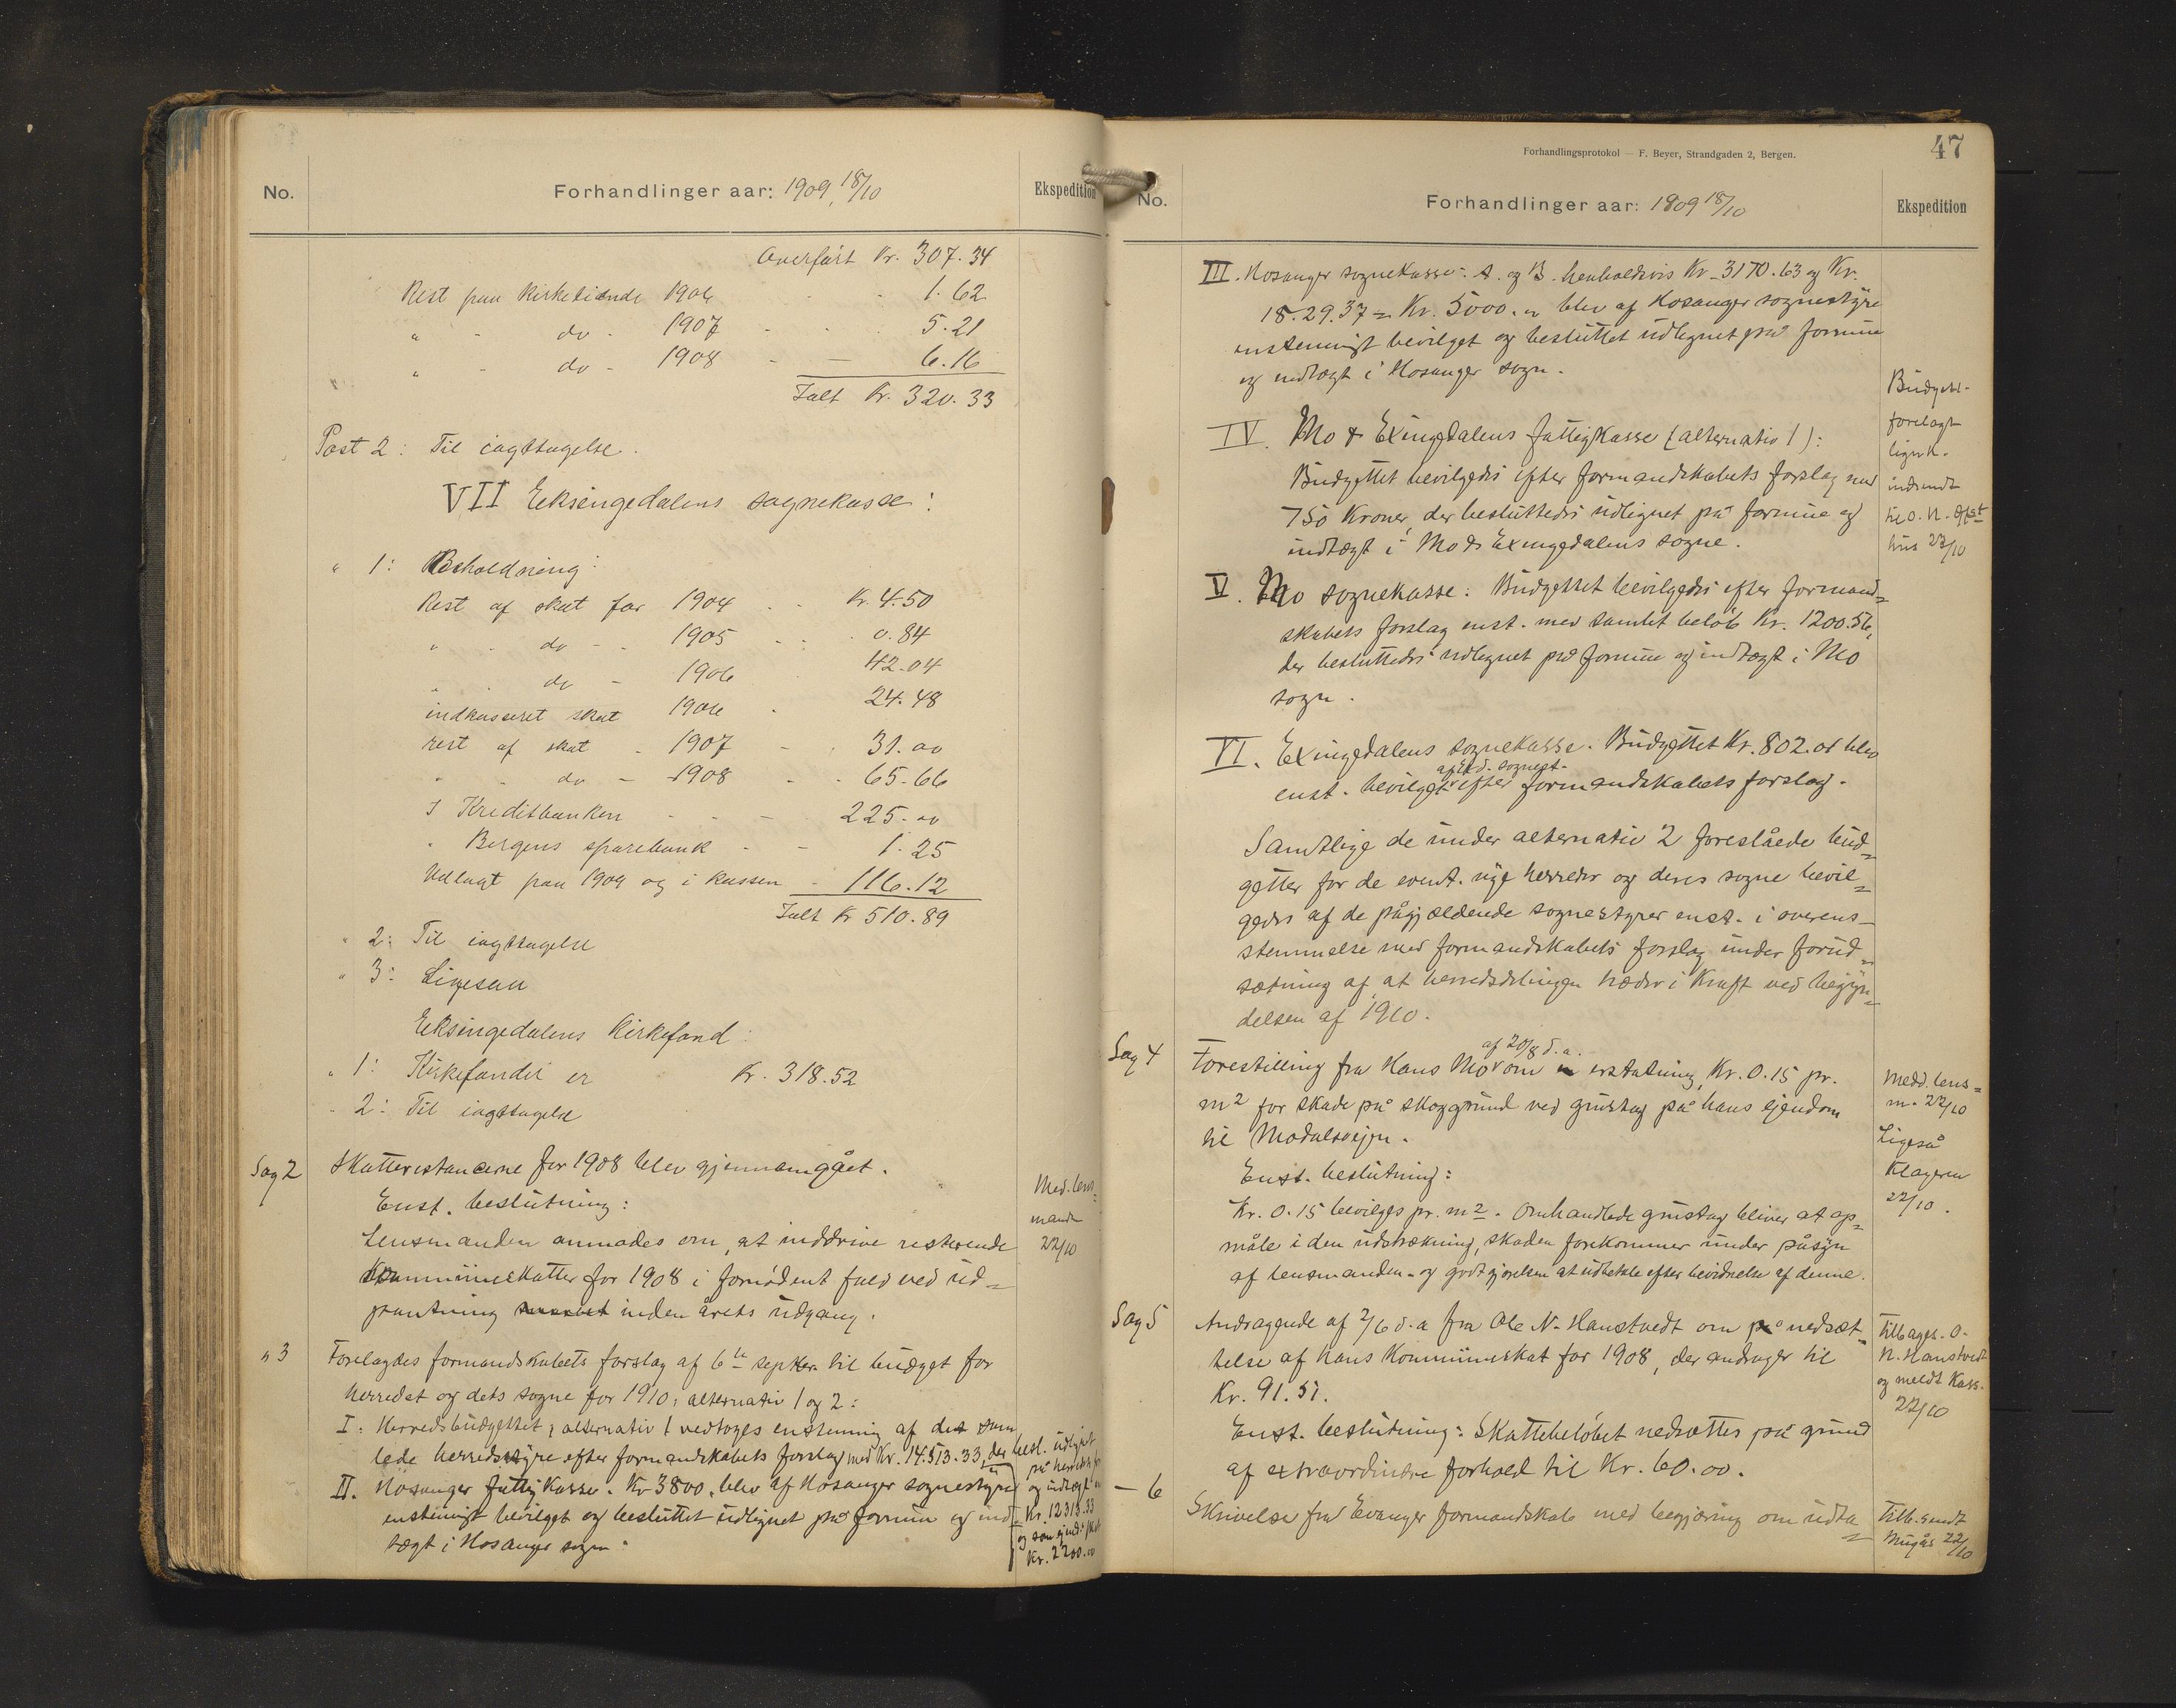 No.
Forhandlinger aar: 1909, 18/10
Ekspedition
Overført Kr. 307.34
Rest paa Kirketiende 1906 - - 1.62
" - do - 1907 - - 5.21
" - do - 1908 - — 6.16
Ialt Kr. 320.33
Post 2: Til iagttagelse.
VII Eeksingedalens sognekasse:
" 1: Beholdning:
Rest af skat for 1904 - - Kr. 4.50
" - do - - 1905 - - 0.84
" - do - 1906 42.04
indkasseret skat 1906 - 24.48
rest af skat - 1907 - - 31.00
" - do - 1908 - - 65.66
I Kreditbanken - - - 225.00
" Bergens sparebank - - 1.25
Udlagt paa 1909 og i kassen - 116.12
Ialt Kr 510.89
" 2: Til iagttagelse
" 3: Ligesaa
Eeksingedalens Kirkefond:
" 1: Kirkefondet er Kr. 318.52
" 2: Til iagttagelse
Sag 2 Skatterestancerne for 1908 blev gjennemgået.
Enst. beslutning:
Lensmanden anmodes om, at inddrive resterende
kommuneskatter for 1908 i fornødent fald ved ud=
pantning inden årets udgang.
Med. lens=
manden
22/10
" 3 Forelagdes formandskabets forslag af 6te septbr. til budget for
herredet og dets sogne for 1910, alternativ 1 og 2:
I: Herredsbudgettet, alternativ 1 vedtoges enstemmig af det sam
lede herredsstyre efter formandskabets forslag med Kr. 14.513.33, der besl. udlignet
på herredets for
og indtægt m
Kr. 12313.33
og som ejend. skat
Kr. 2200.00
II. Hosanger fattigkasse. Kr 3800,. blev af Hosanger sognestyre
enstemigt bevilget og besluttet udlignet på formue og ind=
tægt i Hosanger sogn.
47
Forhandlingsprotokol — F. Beyer, Strandgaden 2, Bergen.
No.
Forhandlinger aar: 1909 18/10
Ekspedition
III. Hosanger sognekasse: A. og B. henholdsvis Kr. 3170.63 og Kr.
18.29.37 = Kr. 5000. " blev af Hosanger sognestyre
enstemmigt bevilget og besluttet udlignet på formue
og indtægt i Hosanger sogn.
IV. Mo & Exingedalens fattigkasse (alternativ 1):
Budgettet bevilgedes efter formandskabets forslag med
750 Kroner, der besluttedes udlignet på formue og
indtægt i Mo & Exingedalens sogne.
Budgetet-
forelagt
lign.k.
indsendt
til O. N.
hus 23/10
V. Mo sognekasse: Budgettet bevilgedes efter formand=
skabets forslag enst. med samlet beløb Kr. 1200.56,
der besluttedes udlignet på formue og indtægt i Mo
sogn.
VI. Exingedalens sognekasse. Budgettet Kr. 802.01 blev
af Exd. sognest.
enst. bevilget efter formandskabets forslag.
Samtlige de under alternativ 2 foreslåede bud=
getter for de event. nye herreder og deres sogne bevil=
gedes af de pågjældende sognestyrer enst. i overens-
stemmelse med formandskabets forslag under forud=
sætning af, at herredsdelingen træder i Kraft ved begyn=
delsen af 1910.
Sag 4 af 20/8 d.a.
Forestilling fra Hans Mo om erstatning, Kr. 0.15 pr.
m2 for skade på skoggrund ved grustag på hans ejendom
til Modalsvejen.
Enst. beslutning:
Kr. 0.15 bevilges pr. m2. Omhandlede grustag bliver at op=
måle i den udstrækning, skaden forekommer under påsyn
af lensmanden - og godtgjørelsen at udbetale efter bevidnelse af denne.
Medd. lens=
m. 22/10
Ligeså
Klageren
22/10.
Sag 5 Andragende af 2/6 d.a. fra Ole N. Hanstvedt om nedsæt=
telse af hans Kommuneskat for 1908, der andrager til
Kr. 91.51.
Enst. beslutning: Skattebeløbet nedsættes på grund
af extraordinære forhold til Kr. 60.00.
Tilbages. O.
N. Hanstvedt
og meldt Kass.
22/10
— 6 Skrivelse fra Evanger formandskab med begjæring om udta=
Tilb. sendt
22/10